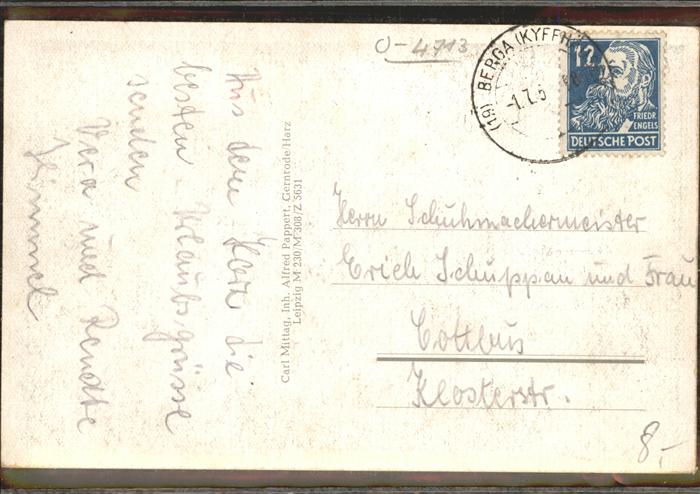 O-4713
(19) BERGA (KYFFH
-1.7.5
12
FRIEDR
ENGELS
DEUTSCHE POST
Aus dem Harz die
besten Urlaubsgrüsse
senden
Vera und
Himmel
Carl Mittag, Inh. Alfred Pappert, Gernrode/Harz
Leipzig M 230/M 308/Z 5631
Herrn Schuhmachermeister
Erich Schuppan und Frau
Cottbus
Klosterstr.
8,-